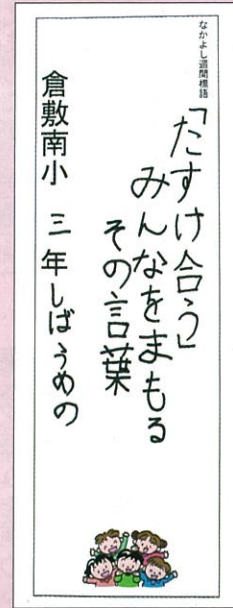 なかよし週間標語
「たすけ合う」
みんなをまもる
その言葉
倉敷南小 三年しばうめの